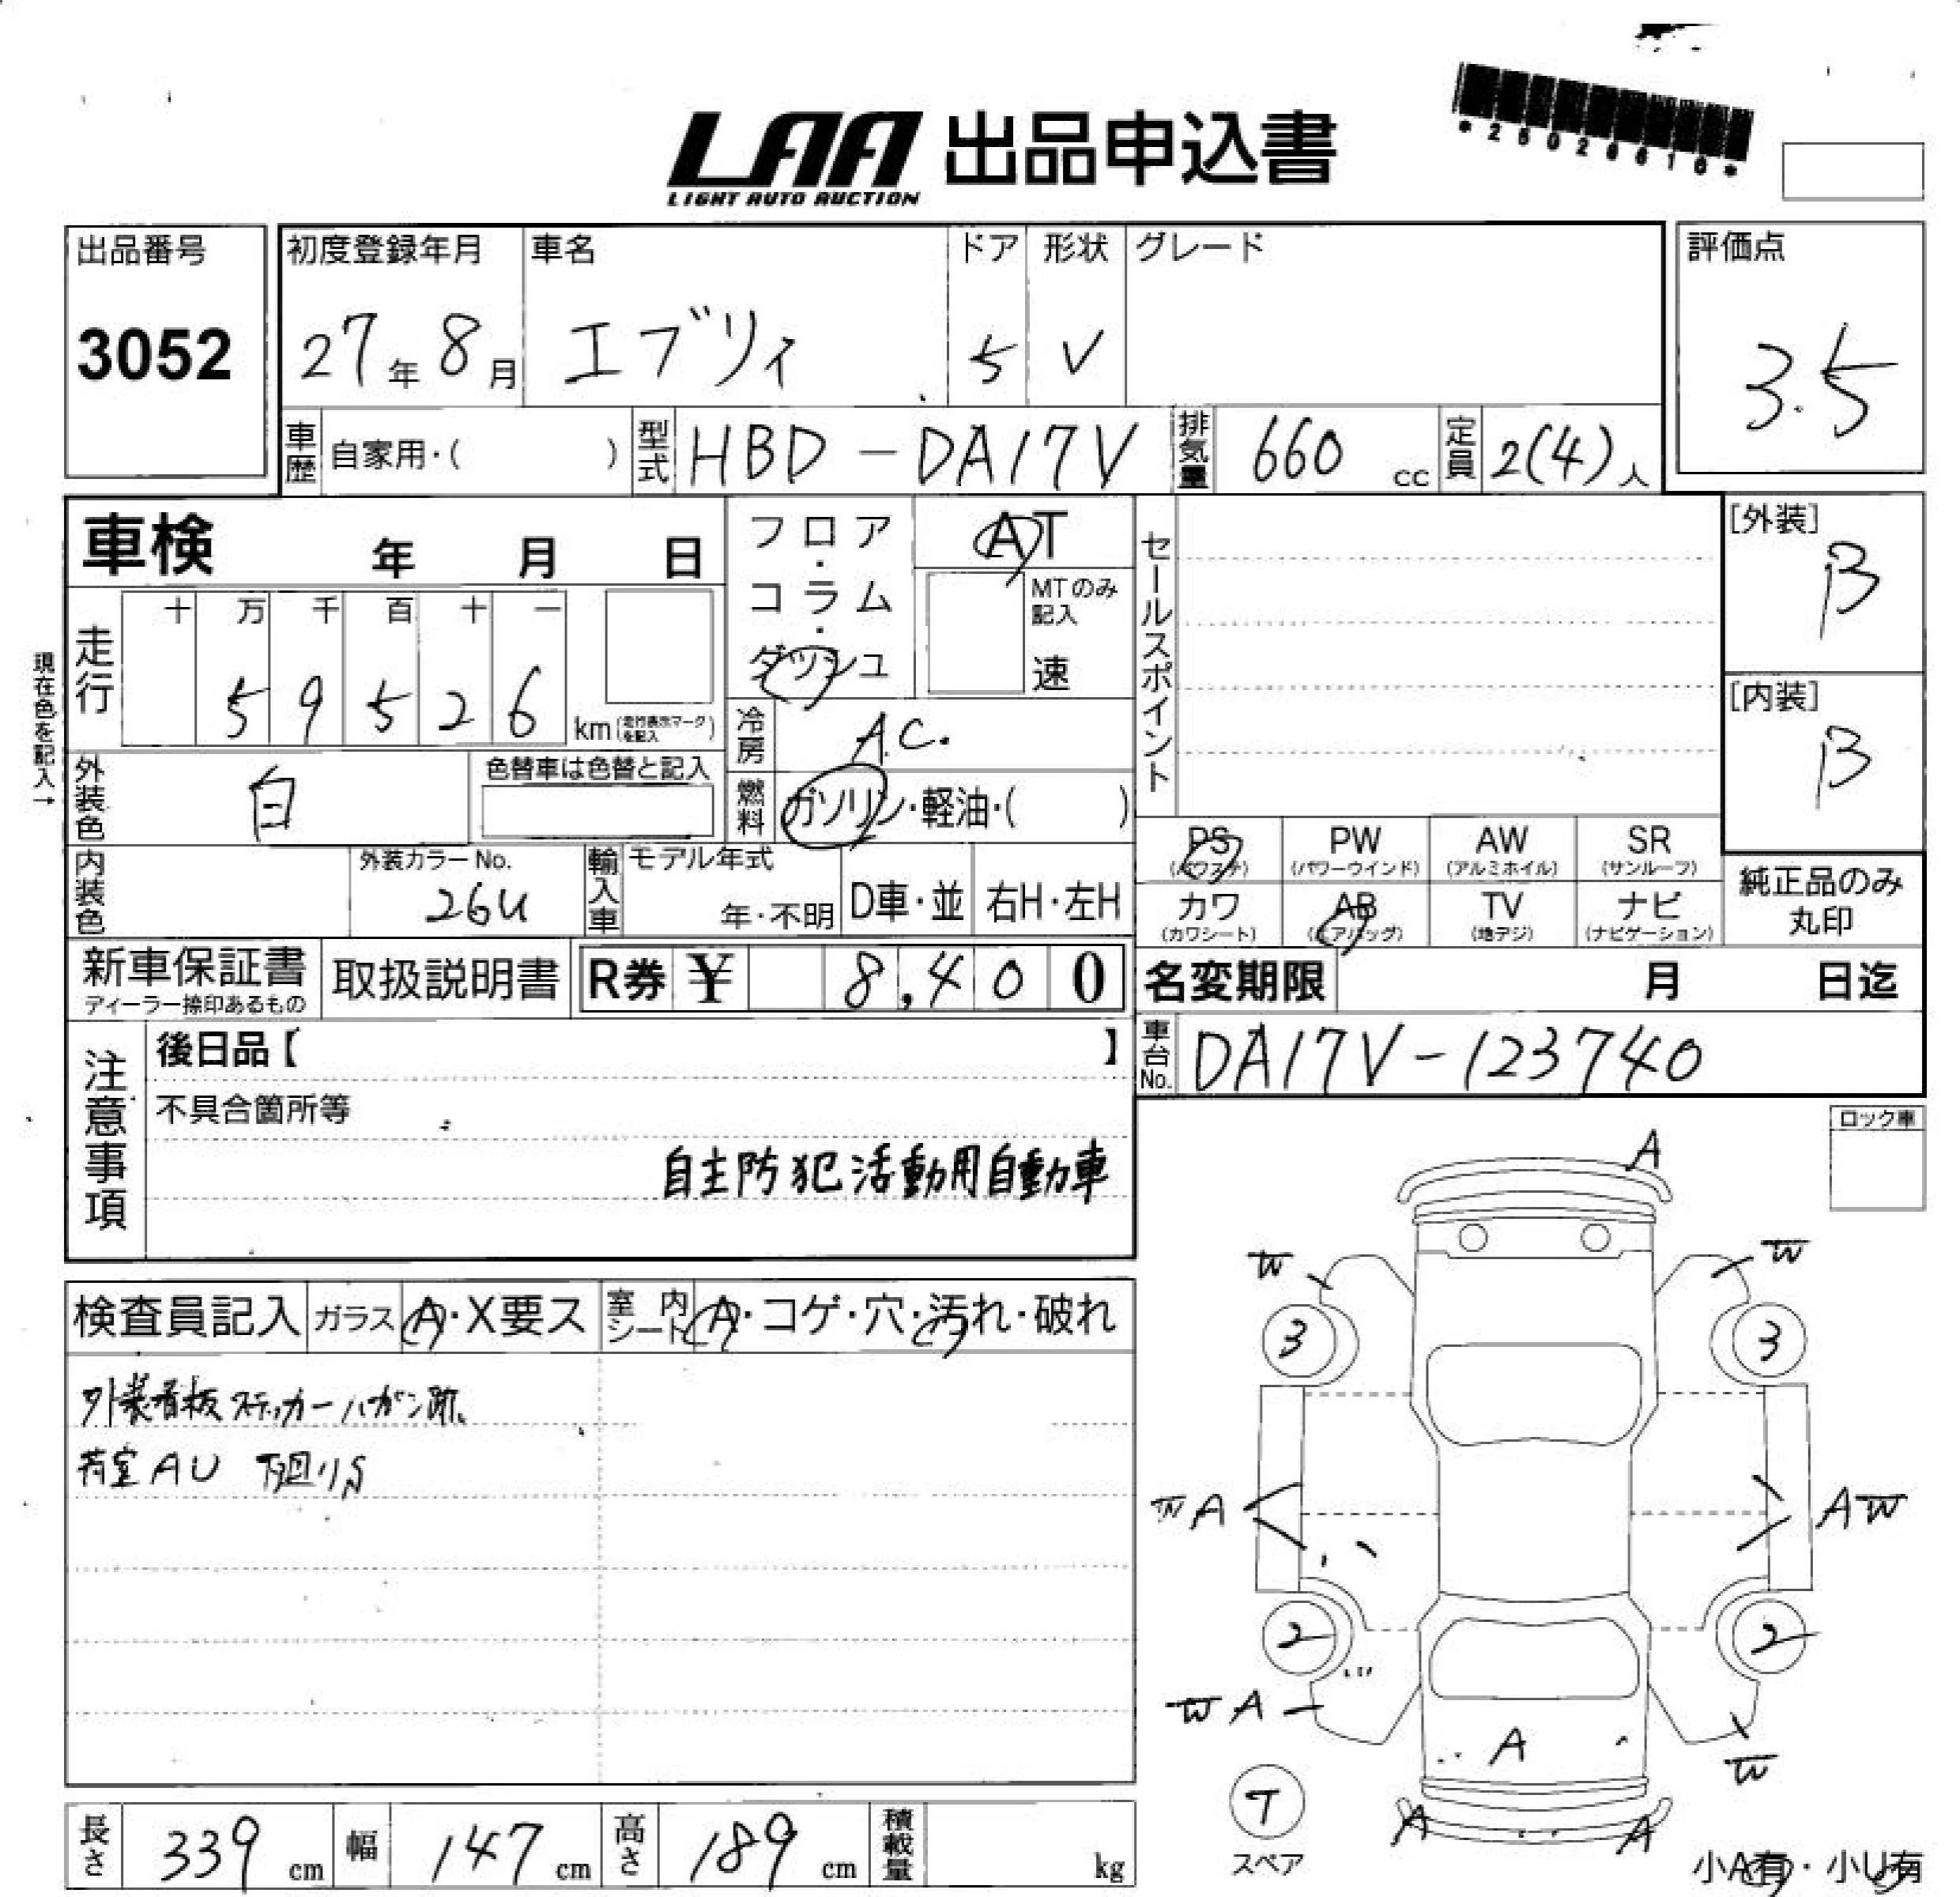 LAA 出品申込書
LIGHT AUTO AUCTION
出品番号
3052
初度登録年月
27年8月
車名
エブリィ
ドア
5
形状
V
グレード
評価点
3.5
車歴 自家用・( )
型式 HBD-DA17V
排気量 660 cc
定員 2(4)人
車検 年 月 日
フロア・コラム・ダッシュ
AT
MTのみ記入
速
セールスポイント
[外装]
B
[内装]
B
現在色を記入→
走行
十 万 千 百 十 一
5 9 5 2 6 km(走行表示マークを記入)
冷房 A.C.
外装色 白
色替車は色替と記入
燃料 ガソリン・軽油・( )
PS (パワステ)
PW (パワーウインド)
AW (アルミホイル)
SR (サンルーフ)
カワ (カワシート)
AB (エアバッグ)
TV (地デジ)
ナビ (ナビゲーション)
純正品のみ
丸印
内装色
外装カラーNo.
26U
輸入車
モデル年式
年・不明
D車・並
右H・左H
新車保証書
ディーラー捺印あるもの
取扱説明書
R券 ¥ 8,400
名変期限 月 日迄
車台No. DA17V-123740
注意事項
後日品【 】
不具合箇所等
自主防犯活動用自動車
ロック車
検査員記入
ガラス A・X要ス
室内シート A・コゲ・穴・汚れ・破れ
外装看板ステッカーハガシ跡、
荷室AU 下廻りS
A
W
W
3
3
W A
A W
2
2
W A
A
W
T
スペア
A
A
小A有・小U有
長さ 339 cm
幅 147 cm
高さ 189 cm
積載量 kg